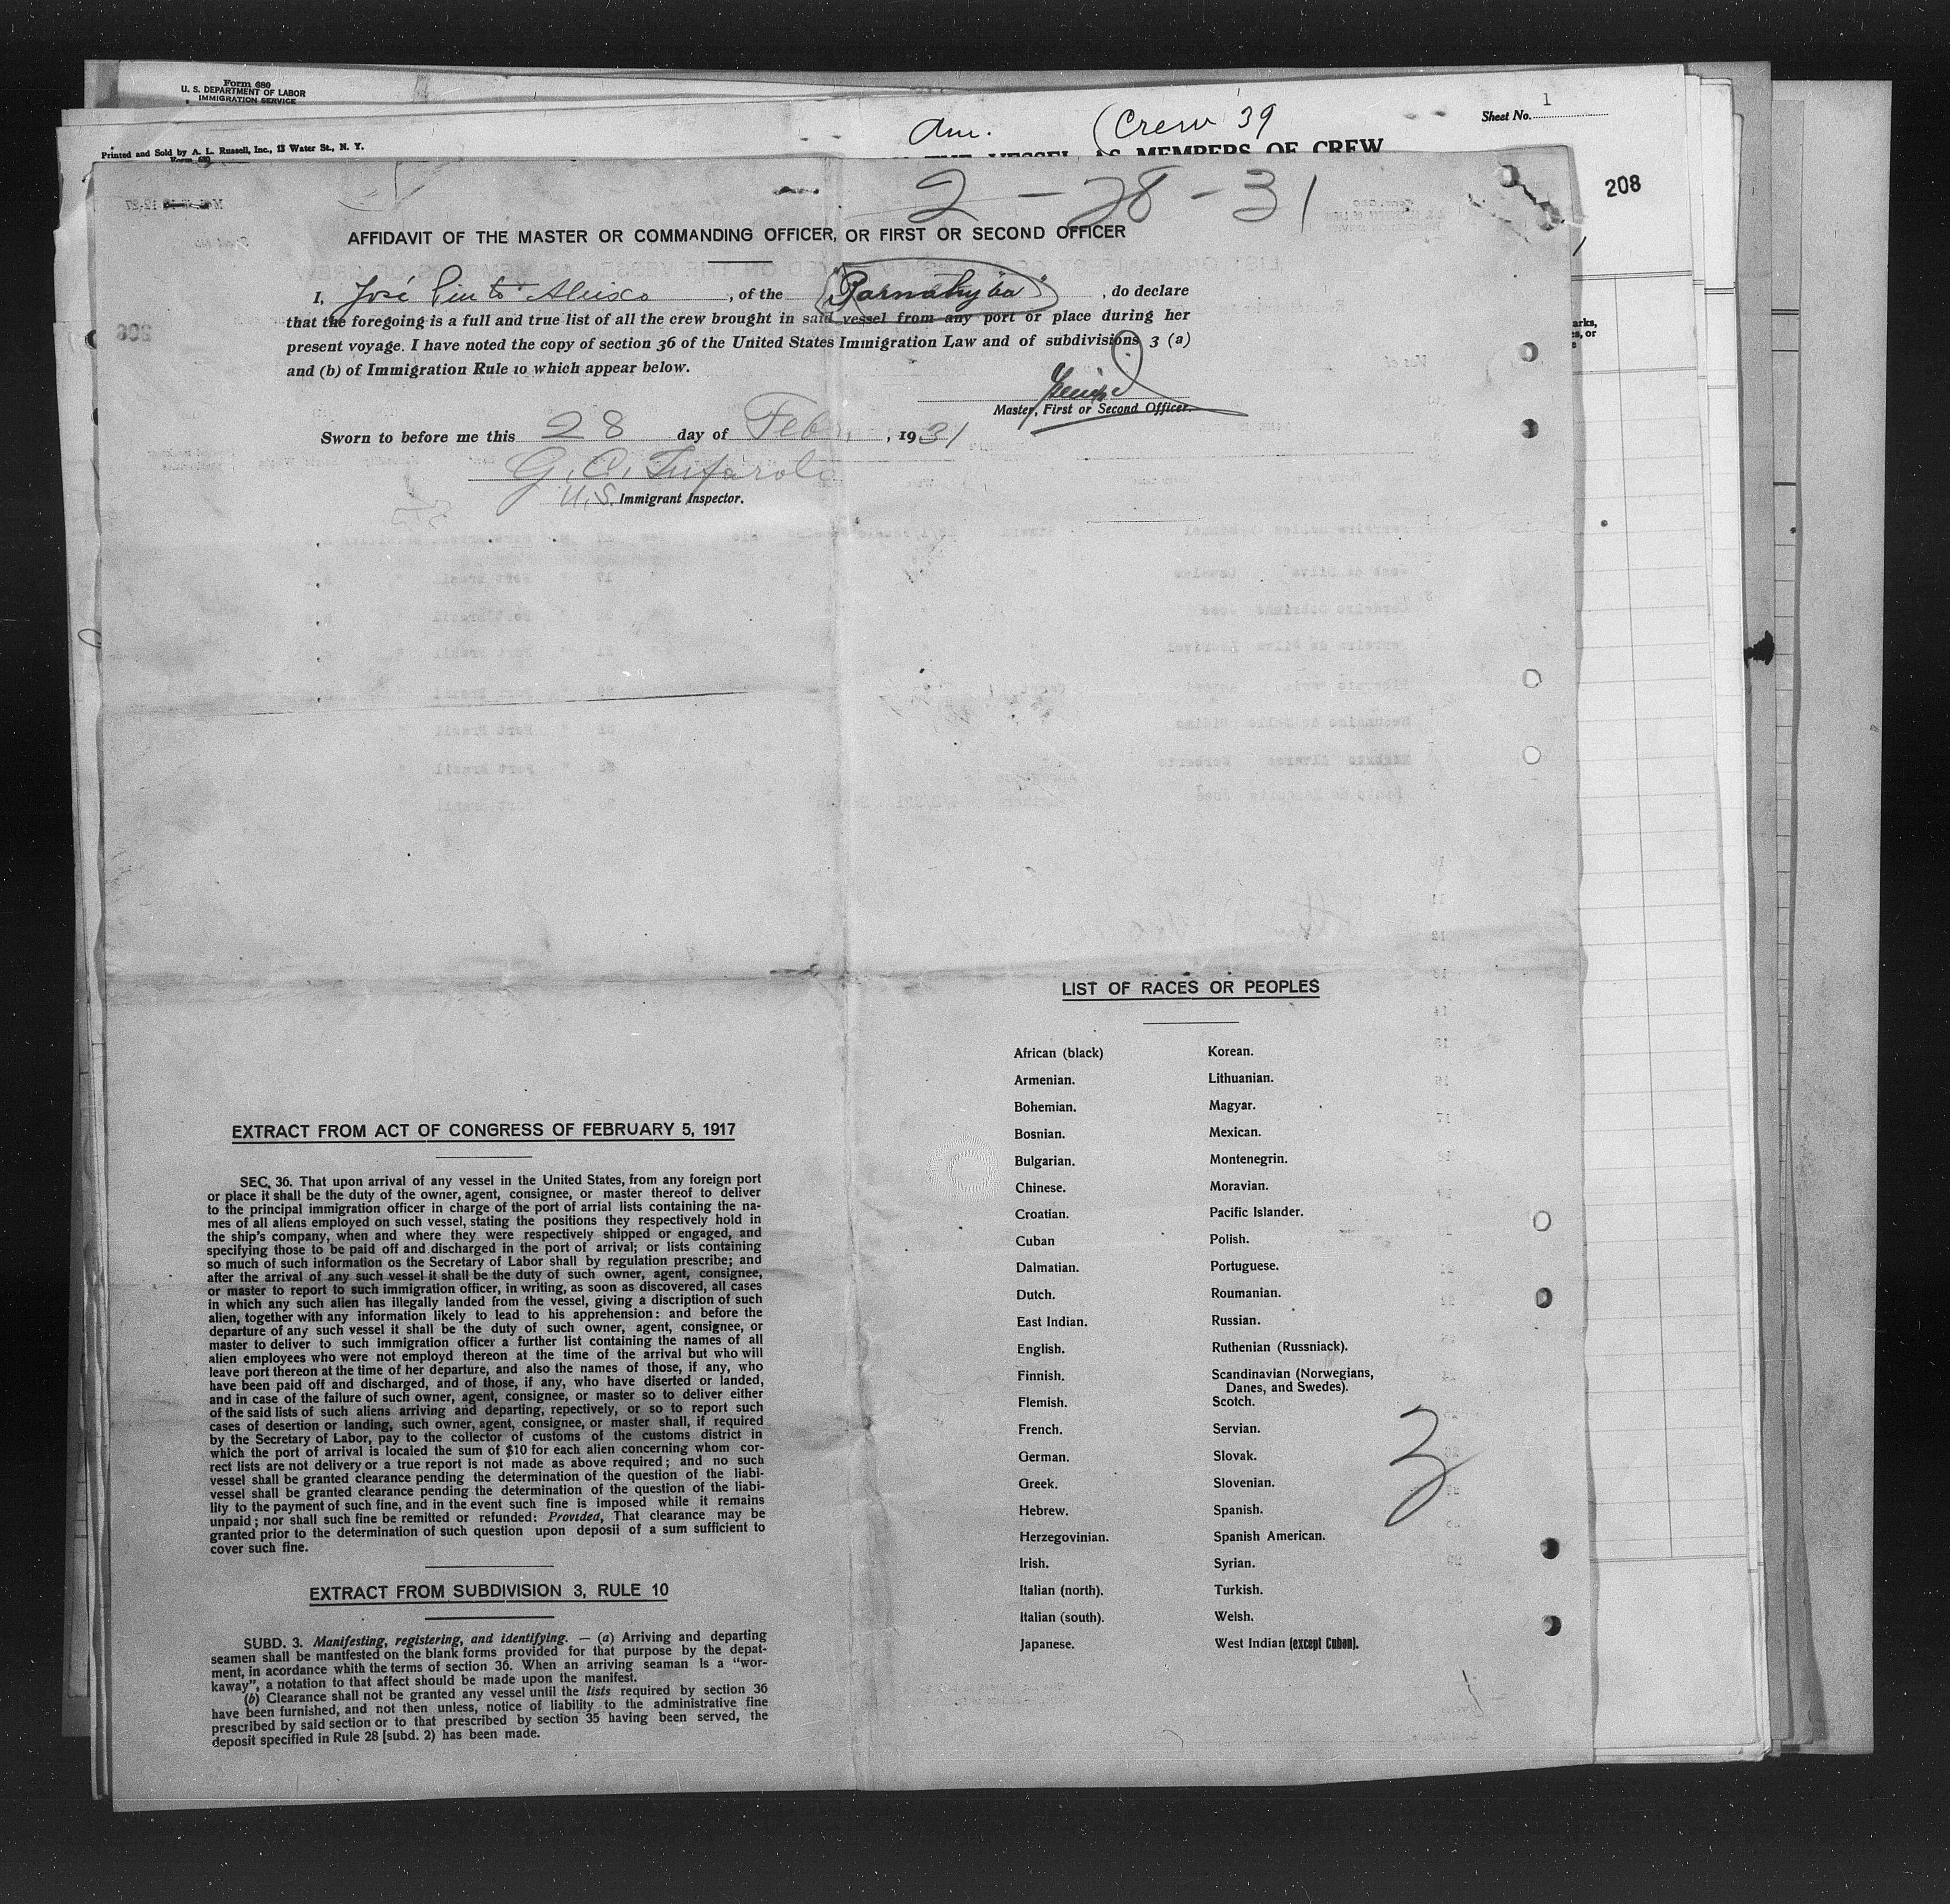 Form 680
U. S. DEPARTMENT OF LABOR
IMMIGRATION SERVICE
Am. (Crew 39
Sheet No. 1
Printed and Sold by A. L. Russell, Inc., 13 Water St., N. Y.
Form 680
THE VESSEL AS MEMBERS OF CREW
208
2 - 28 - 31
AFFIDAVIT OF THE MASTER OR COMMANDING OFFICER, OR FIRST OR SECOND OFFICER
I, José Pinto , of the "Parnahyba" , do declare
that the foregoing is a full and true list of all the crew brought in said vessel from any port or place during her
present voyage. I have noted the copy of section 36 of the United States Immigration Law and of subdivisions 3 (a)
and (b) of Immigration Rule 10 which appear below.
Master, First or Second Officer.
Sworn to before me this 28 day of Feb. , 1931
G. C. Tufarolo
U.S. Immigrant Inspector.
LIST OF RACES OR PEOPLES
African (black) Korean.
Armenian. Lithuanian.
Bohemian. Magyar.
Bosnian. Mexican.
Bulgarian. Montenegrin.
Chinese. Moravian.
Croatian. Pacific Islander.
Cuban Polish.
Dalmatian. Portuguese.
Dutch. Roumanian.
East Indian. Russian.
English. Ruthenian (Russniack).
Finnish. Scandinavian (Norwegians,
Danes, and Swedes).
Flemish. Scotch.
French. Servian.
German. Slovak.
Greek. Slovenian.
Hebrew. Spanish.
Herzegovinian. Spanish American.
Irish. Syrian.
Italian (north). Turkish.
Italian (south). Welsh.
Japanese. West Indian (except Cuban).
3
EXTRACT FROM ACT OF CONGRESS OF FEBRUARY 5, 1917
SEC. 36. That upon arrival of any vessel in the United States, from any foreign port
or place it shall be the duty of the owner, agent, consignee, or master thereof to deliver
to the principal immigration officer in charge of the port of arrial lists containing the na-
mes of all aliens employed on such vessel, stating the positions they respectively hold in
the ship's company, when and where they were respectively shipped or engaged, and
specifying those to be paid off and discharged in the port of arrival; or lists containing
so much of such information os the Secretary of Labor shall by regulation prescribe; and
after the arrival of any such vessel it shall be the duty of such owner, agent, consignee,
or master to report to such immigration officer, in writing, as soon as discovered, all cases
in which any such alien has illegally landed from the vessel, giving a discription of such
alien, together with any information likely to lead to his apprehension: and before the
departure of any such vessel it shall be the duty of such owner, agent, consignee, or
master to deliver to such immigration officer a further list containing the names of all
alien employees who were not employd thereon at the time of the arrival but who will
leave port thereon at the time of her departure, and also the names of those, if any, who
have been paid off and discharged, and of those, if any, who have diserted or landed,
and in case of the failure of such owner, agent, consignee, or master so to deliver either
of the said lists of such aliens arriving and departing, repectively, or so to report such
cases of desertion or landing, such owner, agent, consignee, or master shall, if required
by the Secretary of Labor, pay to the collector of customs of the customs district in
which the port of arrival is locaied the sum of $10 for each alien concerning whom cor-
rect lists are not delivery or a true report is not made as above required; and no such
vessel shall be granted clearance pending the determination of the question of the liabi-
vessel shall be granted clearance pending the determination of the question of the liabi-
lity to the payment of such fine, and in the event such fine is imposed while it remains
unpaid; nor shall such fine be remitted or refunded: Provided, That clearance may be
granted prior to the determination of such question upon deposii of a sum sufficient to
cover such fine.
EXTRACT FROM SUBDIVISION 3, RULE 10
SUBD. 3. Manifesting, registering, and identifying. — (a) Arriving and departing
seamen shall be mantfested on the blank forms provided for that purpose by the depat-
ment, in acordance whith the terms of section 36. When an arriving seaman Is a "wor-
kaway", a notation to that affect should be made upon the manifest.
(b) Clearance shall not be granted any vessel until the lists required by section 36
have been furnished, and not then unless, notice of liability to the administrative fine
prescribed by said section or to that prescribed by section 35 having been served, the
deposit specified in Rule 28 [subd. 2) has been made.